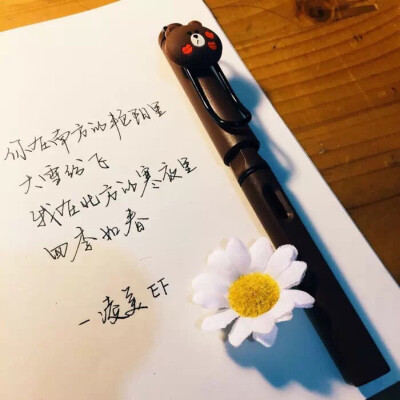 你在南方的艳阳里
大雪纷飞
我在北方的寒夜里
四季如春
—凌美 EF